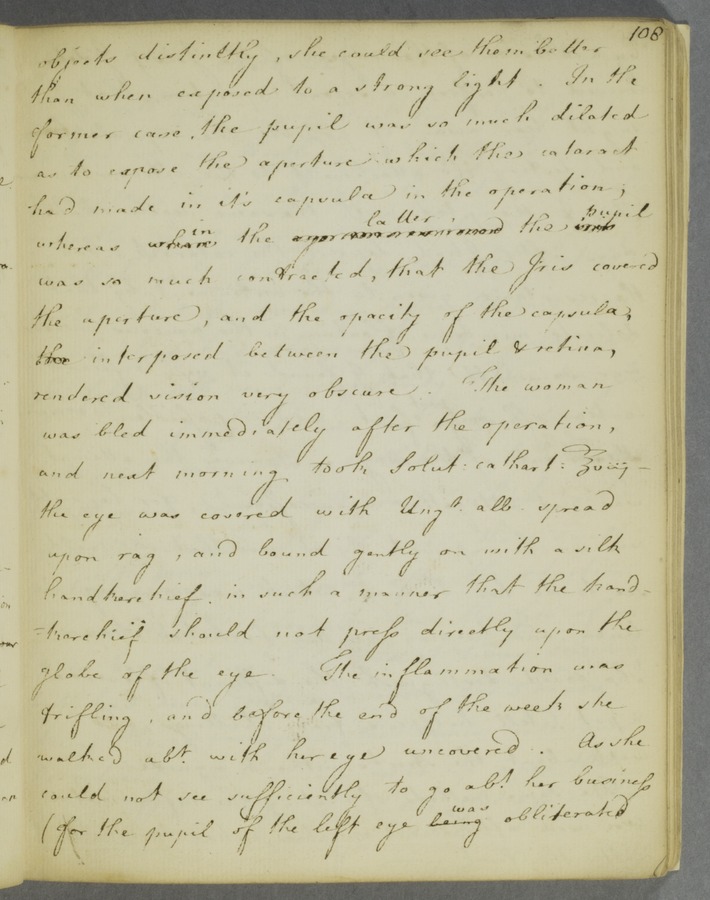 108
objects distinctly, she could see them better
than when exposed to a strong light. In the
former case, the pupil was so much dilated
as to expose the aperture which the cataract
had made in it's capsula in the operation;
whereas in the latter, the pupil
was so much contracted, that the Iris covered
the aperture, and the opacity of the capsula,
the interposed between the pupil & retina,
rendered vision very obscure. The woman
was bled immediately after the operation,
and next morning took Solut: cathart: ℥viij –
the eye was covered with Ung.t alb. spread
upon rag, and bound gently on with a silk
handkerchief, in such a manner that the hand-
=kerchief should not press directly upon the
globe of the eye. The inflammation was
trifling, and before the end of the week she
walked abt. with her eye uncovered. As she
could not see sufficiently to go abt. her business
(for the pupil of the left eye being was obliterated